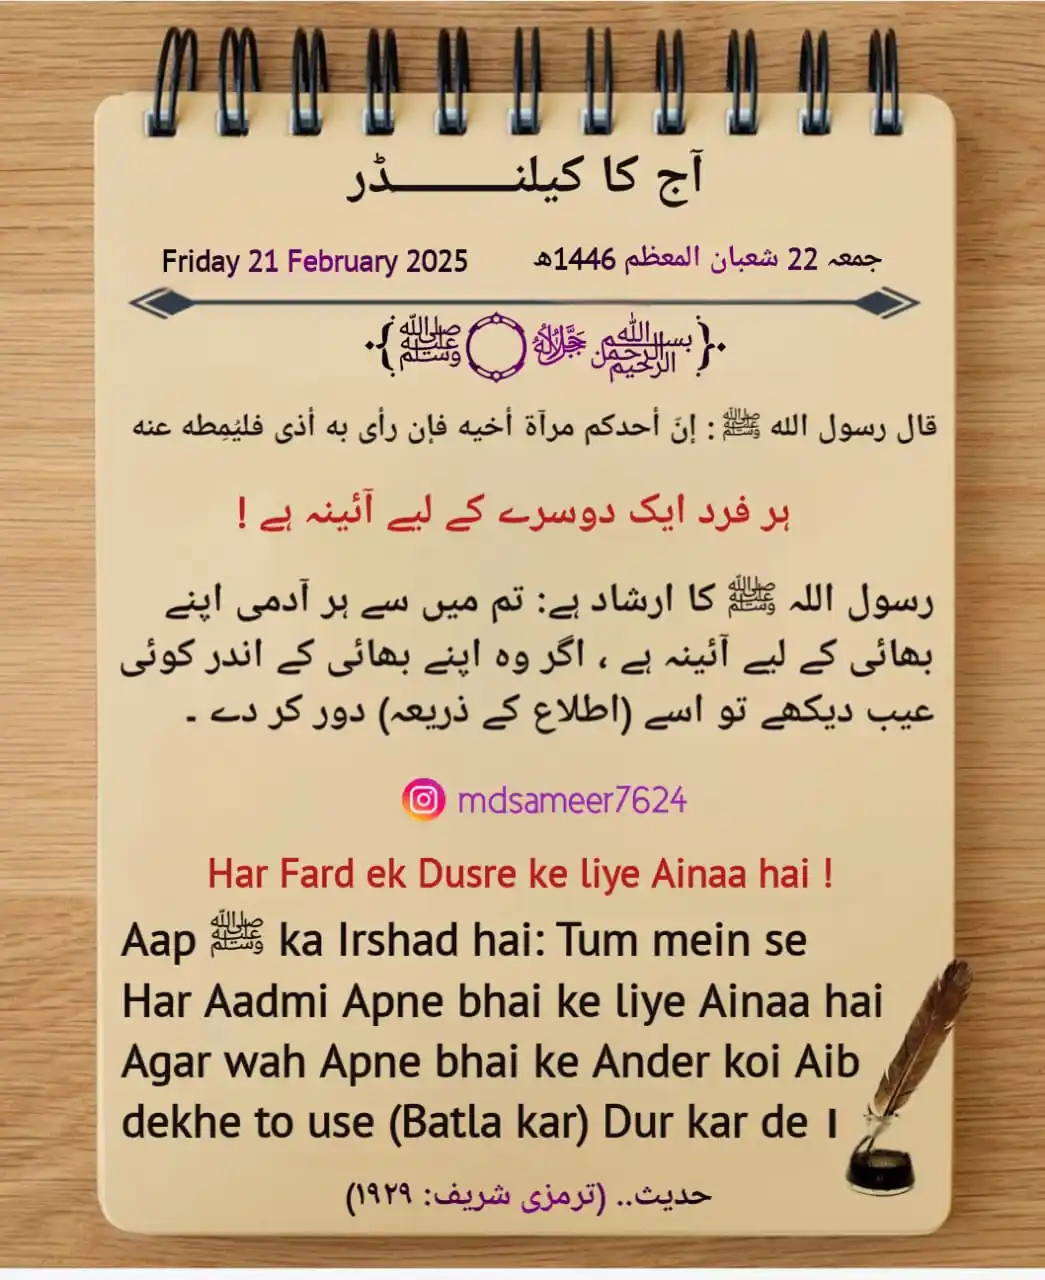 آج کا کیلنــــــــــڈر
Friday 21 February 2025
جمعہ 22 شعبان المعظم 1446ھ
﷽ ﷻ ﷺ
قال رسول الله ﷺ : إنّ أحدكم مرآة أخيه فإن رأى به أذى فليُمِطه عنه
ہر فرد ایک دوسرے کے لیے آئینہ ہے !
رسول اللہ ﷺ کا ارشاد ہے: تم میں سے ہر آدمی اپنے
بھائی کے لیے آئینہ ہے ، اگر وہ اپنے بھائی کے اندر کوئی
عیب دیکھے تو اسے (اطلاع کے ذریعہ) دور کر دے ۔
mdsameer7624
Har Fard ek Dusre ke liye Ainaa hai !
Aap ﷺ ka Irshad hai: Tum mein se
Har Aadmi Apne bhai ke liye Ainaa hai
Agar wah Apne bhai ke Ander koi Aib
dekhe to use (Batla kar) Dur kar de ।
حدیث.. (ترمزی شریف: ١٩٢٩)